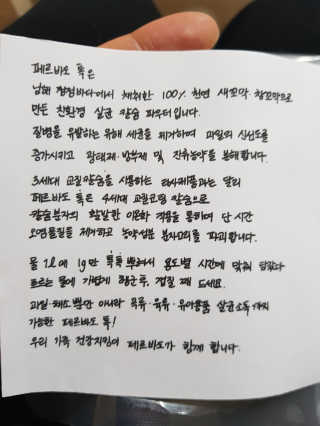 페르바도 톡은
남해 청정바다에서 채취한 100% 천연 새꼬막, 참꼬막으로
만든 친환경 살균 칼슘 파우더입니다.
질병을 유발하는 유해 세균을 제거하며 과일의 신선도를
증가시키고 광택제·방부제 및 잔류농약을 분해합니다.
3세대 교질칼슘을 사용하는 타사제품과는 달리
페르바도 톡은 4세대 교질교립 칼슘으로
칼슘분자의 활발한 이온화 작용을 통하여 단 시간
오염물질을 제거하고 농약성분 분자고리를 파괴합니다.
물 2L에 1g만 톡톡 뿌려서 용도별 시간에 맞춰 담갔다
흐르는 물에 가볍게 헹군후, 껍질 째 드세요.
과일·채소뿐만 아니라 육류·유아용품 살균소독까지
가능한 페르바도 톡!
우리 가족 건강지킴이 페르바도가 함께 합니다.